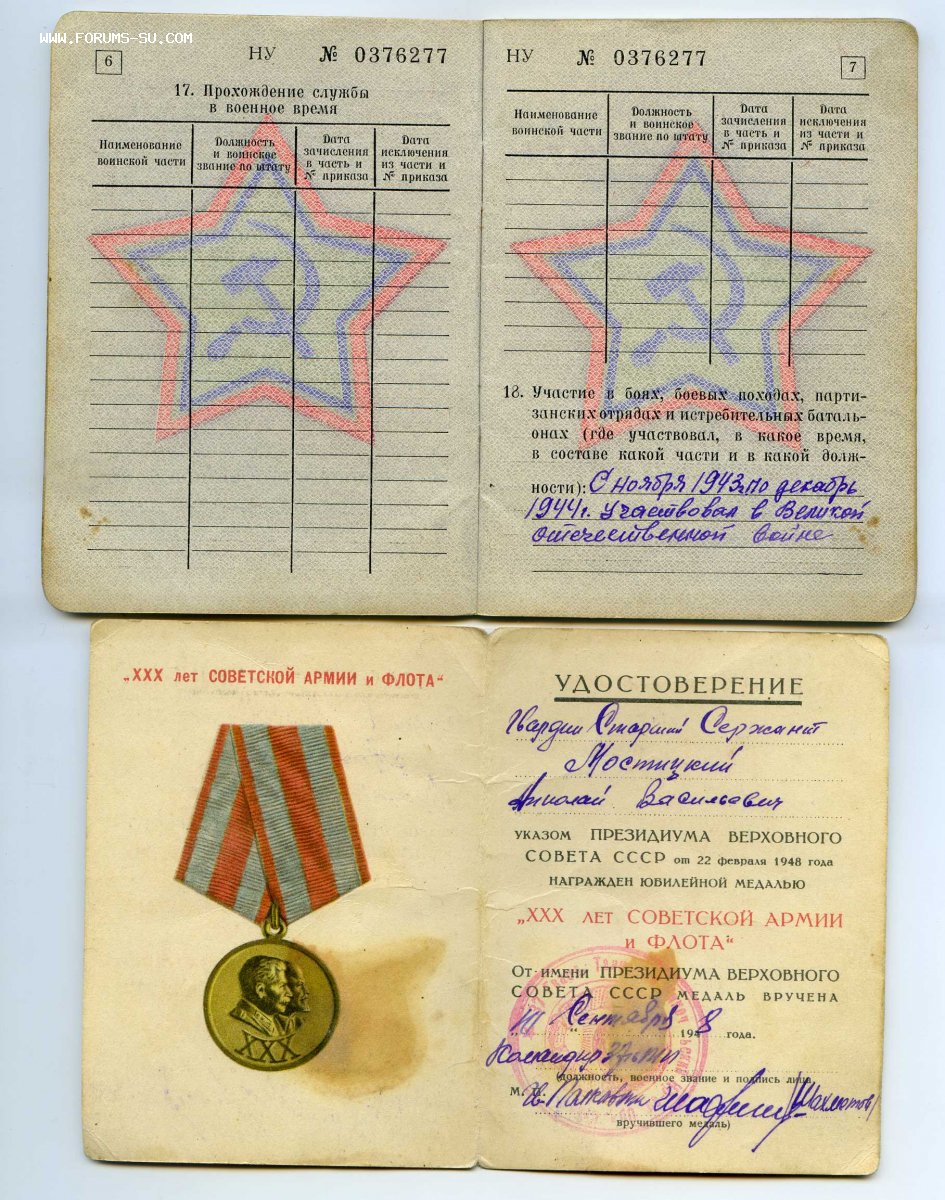 www.forums-su.com
6
НУ № 0376277
17. Прохождение службы
в военное время
Наименование
воинской части
Должность
и воинское
звание по штату
Дата
зачисления
в часть и
№ приказа
Дата
исключения
из части и
№ приказа
НУ № 0376277
7
Наименование
воинской части
Должность
и воинское
звание по штату
Дата
зачисления
в часть и
№ приказа
Дата
исключения
из части и
№ приказа
18. Участие в боях, боевых походах, парти-
занских отрядах и истребительных баталь-
онах (где участвовал, в какое время,
в составе какой части и в какой долж-
ности): С ноября 1943г. по декабрь
1944г. участвовал в Великой
отечественной войне
„XXX лет СОВЕТСКОЙ АРМИИ и ФЛОТА“
XXX
УДОСТОВЕРЕНИЕ
Гвардии Старший Сержант
Мостицкий
Николай Васильевич
указом ПРЕЗИДИУМА ВЕРХОВНОГО
СОВЕТА СССР от 22 февраля 1948 года
НАГРАЖДЕН ЮБИЛЕЙНОЙ МЕДАЛЬЮ
„XXX ЛЕТ СОВЕТСКОЙ АРМИИ
и ФЛОТА“
От имени ПРЕЗИДИУМА ВЕРХОВНОГО
СОВЕТА СССР МЕДАЛЬ ВРУЧЕНА
Сентября 1948 года.
Командир
(должность, военное звание и подпись лица,
М. П.
Шахматов
вручившего медаль)